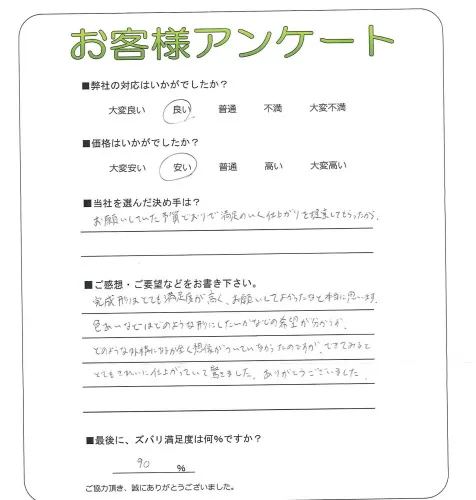 お客様アンケート
■弊社の対応はいかがでしたか?
大変良い 良い 普通 不満 大変不満
■価格はいかがでしたか?
大変安い 安い 普通 高い 大変高い
■当社を選んだ決め手は?
お願いしていた予算どおりで満足のいく仕上がりを提案してもらったから。
■ご感想・ご要望などをお書き下さい。
完成形はとても満足度が高く、お願いしてよかったなと本当に思います。
色あいなどはどのような形にしたいかなどの希望が分かうが、
どのような外構になるか全く想像がついていなかったのですが、できてみると
とてもきれいに仕上がっていて驚きました。ありがとうございました。
■最後に、ズバリ満足度は何%ですか?
90 %
ご協力頂き、誠にありがとうございました。